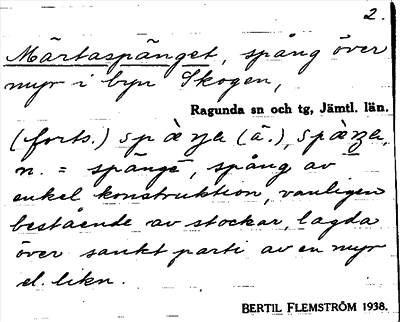 2.
Märtaspänget, spång över
myr i byn Skogen,
Ragunda sn och tg, Jämtl. län.
(forts.) (ä.),
n. = spänge, spång av
enkel konstruktion, vanligen
bestående av stockar, lagda
över sankt parti av en myr
el. likn.
BERTIL FLEMSTRÖM 1938.